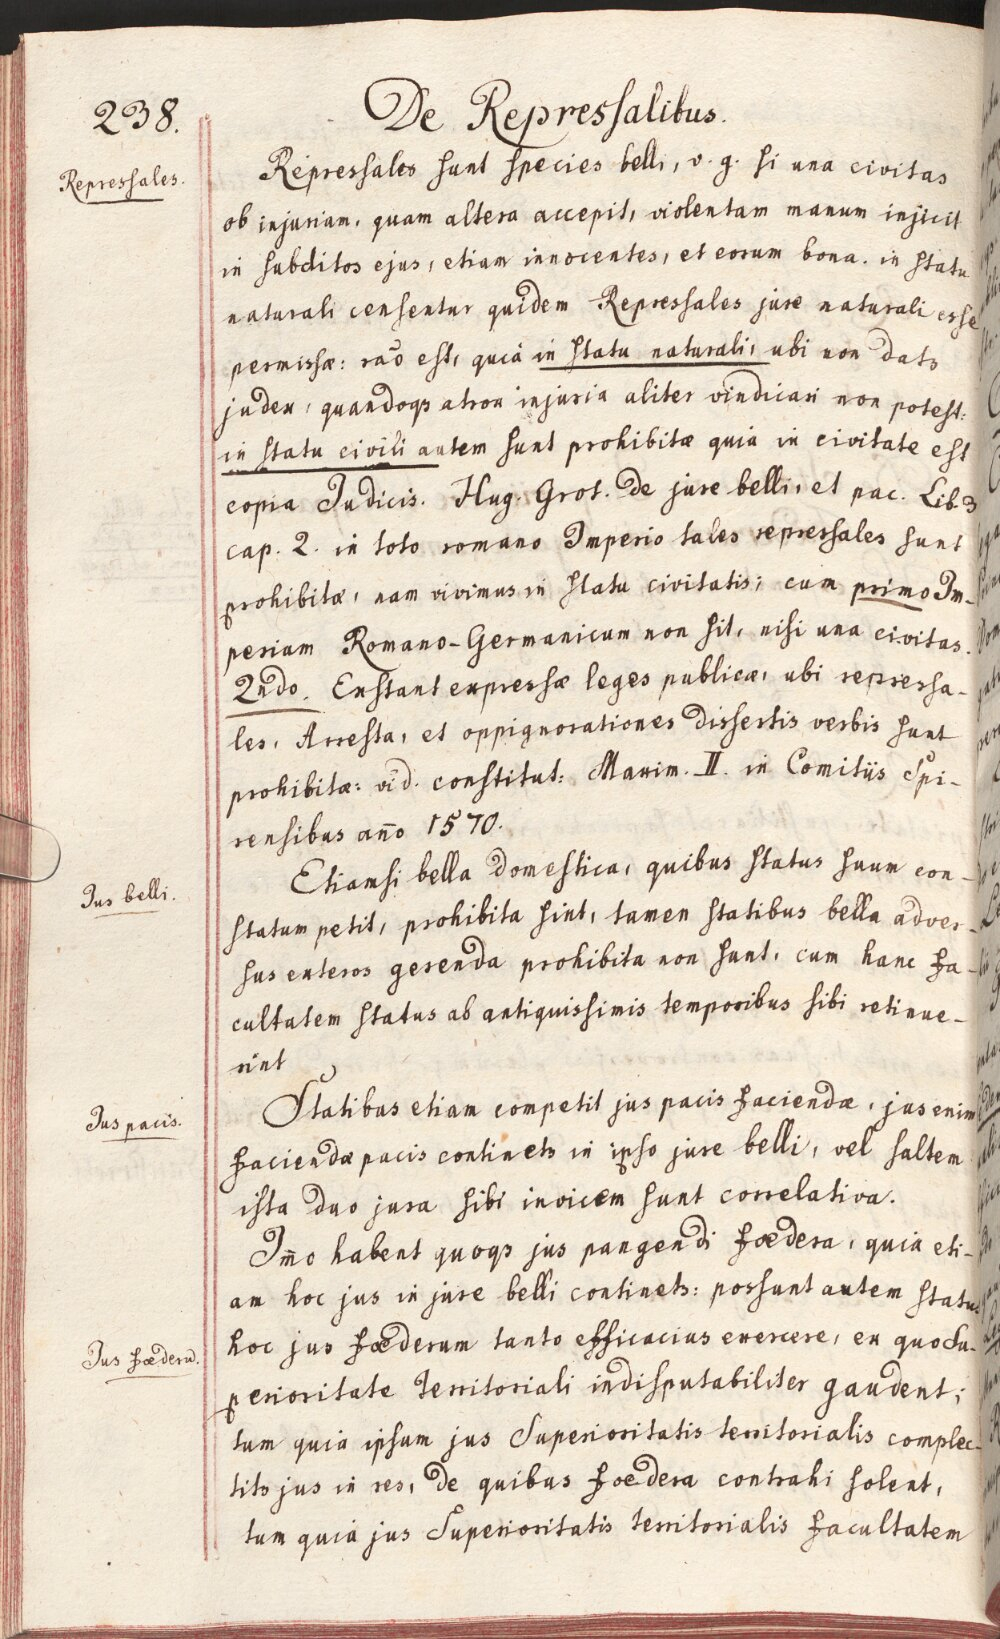 238.
De Repressalibus.
Repressales.
Repressales sunt species belli, v. g. si una civitas
ob injuriam, quam altera accepit, violentam manum injicit
in subditos ejus, etiam innocentes, et eorum bona. in statu
naturali censentur quidem Repressales jure naturali esse
permissæ: rao est, quia in statu naturali, ubi non datr
judex, quandoq atrox injuria aliter vindicari non potest:
in statu civili autem sunt prohibitæ quia in civitate est
copia Judicis. Hug. Grot. de jure belli, et pac. Lib. 3
cap. 2. in toto romano Imperio tales repressales sunt
prohibitæ, nam vivimus in statu civitatis; cum primo Im-
perium Romano-Germanicum non sit, nisi una civitas.
2ndo. Exstant expressæ leges publicæ, ubi repressa-
les, Arresta, et oppignorationes dissertis verbis sunt
prohibitæ: vid. constitut: Maxim. II. in Comitiis Spi-
rensibus año 1570.
Jus belli.
Etiamsi bella domestica, quibus status suum con-
statum petit, prohibita sint, tamen statibus bella adver-
sus exteros gerenda prohibita non sunt, cum hanc fa-
cultatem status ab antiquissimis temporibus sibi retinue-
rint
Jus pacis.
Statibus etiam competit jus pacis faciendæ, jus enim
faciendæ pacis continetr in ipso jure belli, vel saltem
ista duo jura sibi invicem sunt correlativa.
Im̃o habent quoq jus pangendi fœdera, quia eti-
am hoc jus in jure belli continetr: possunt autem status
Jus fœderũ.
hoc jus fœderum tanto efficacius exercere, ex quo Su-
perioritate territoriali indisputabiliter gaudent;
tum quia ipsum jus Superioritatis territorialis complec-
titr jus in res, de quibus fœdera contrahi solent,
tum quia jus Superioritatis territorialis facultatem